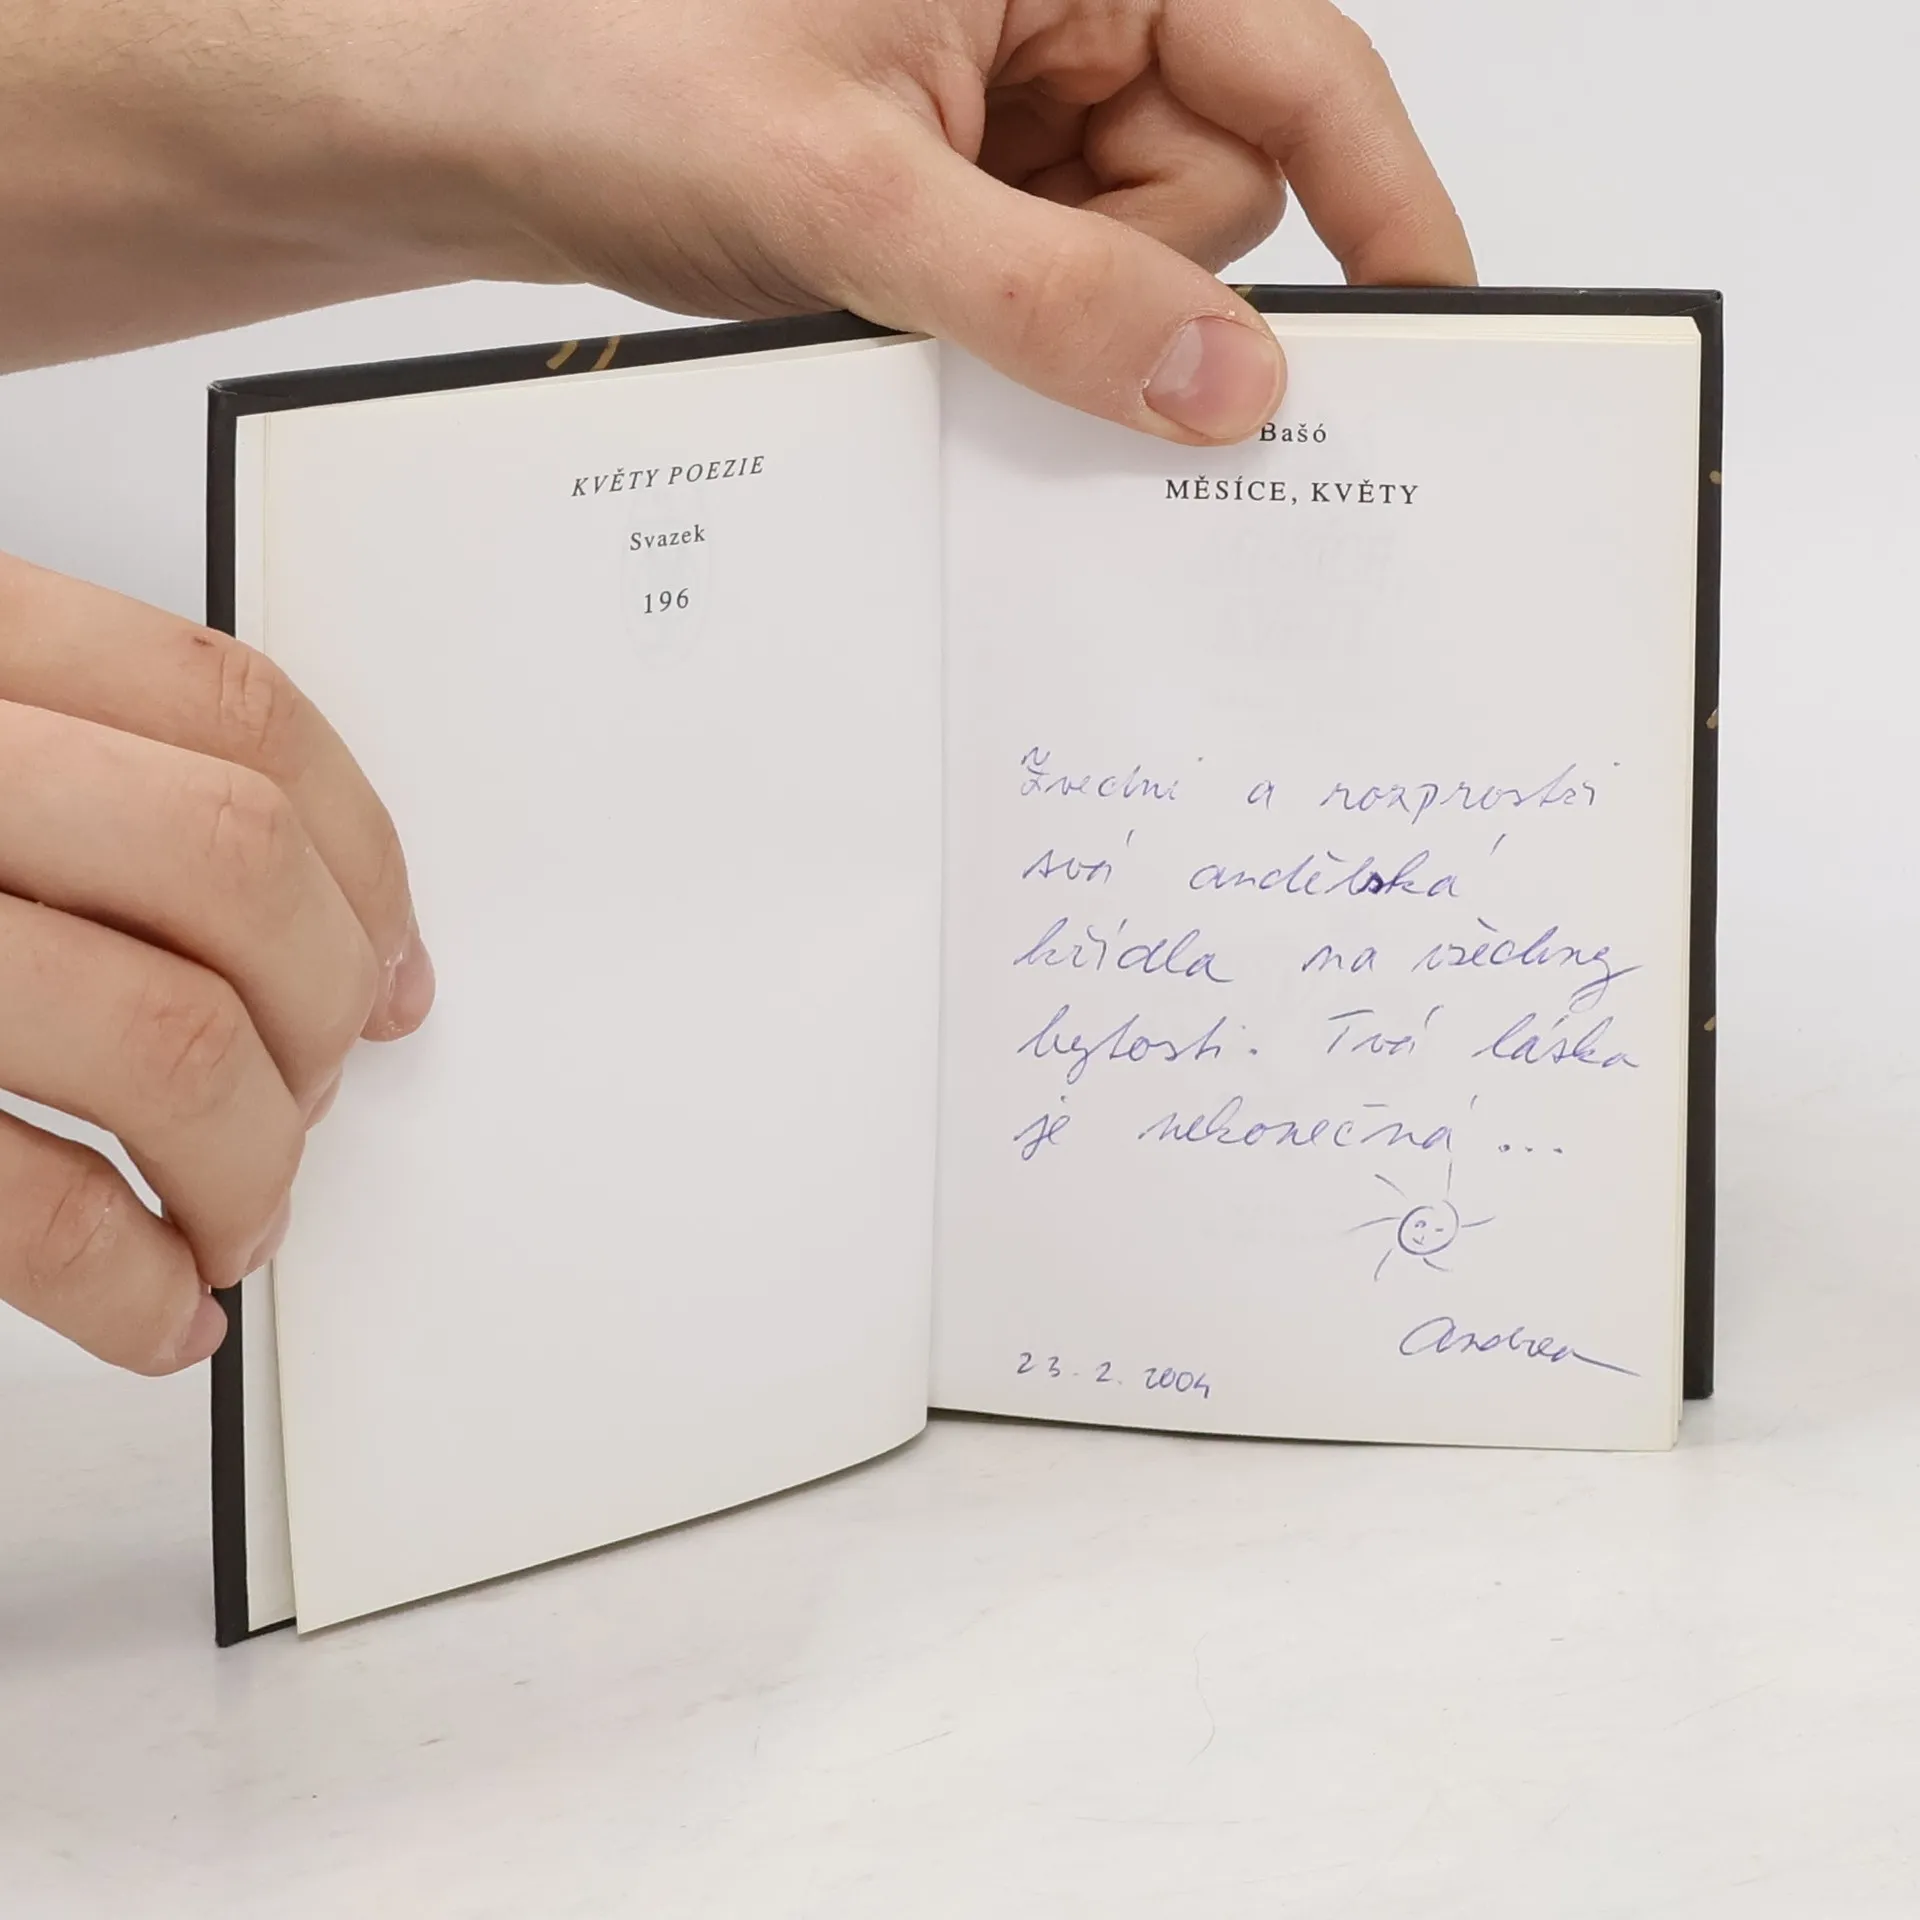 KVĚTY POEZIE
Svazek
196
Bašó
MĚSÍCE, KVĚTY
Zvedni a rozprostři
svá andělská
křídla na všechny
bytosti. Tvá láska
je nekonečná ...
Andrea
23. 2. 2004